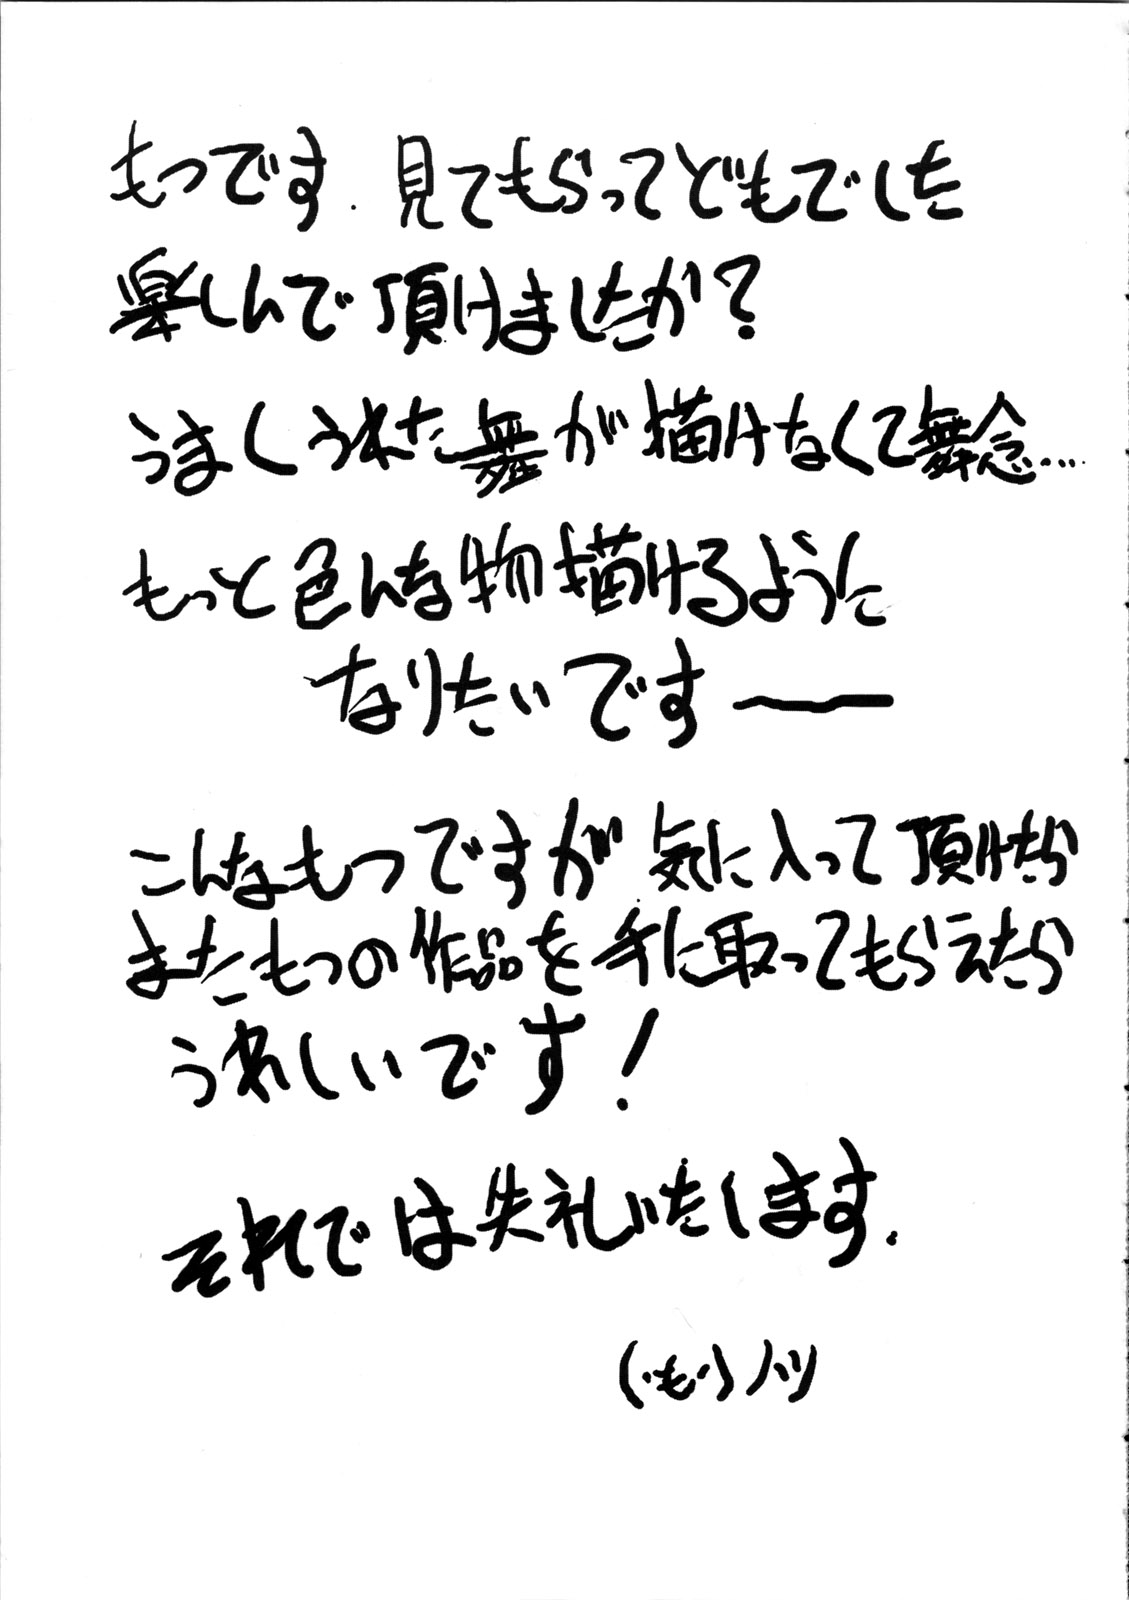 もつです.見てもらってどもでした
楽しんで頂けましたか?
うまくうれた舞が描けなくて舞念....
もっと色んな物描けるように
なりたいです〜
こんなもつですが気に入って頂けたら
またもつの作品を手に取ってもらえたら
うれしいです!
それでは失礼いたします.
(・も・)